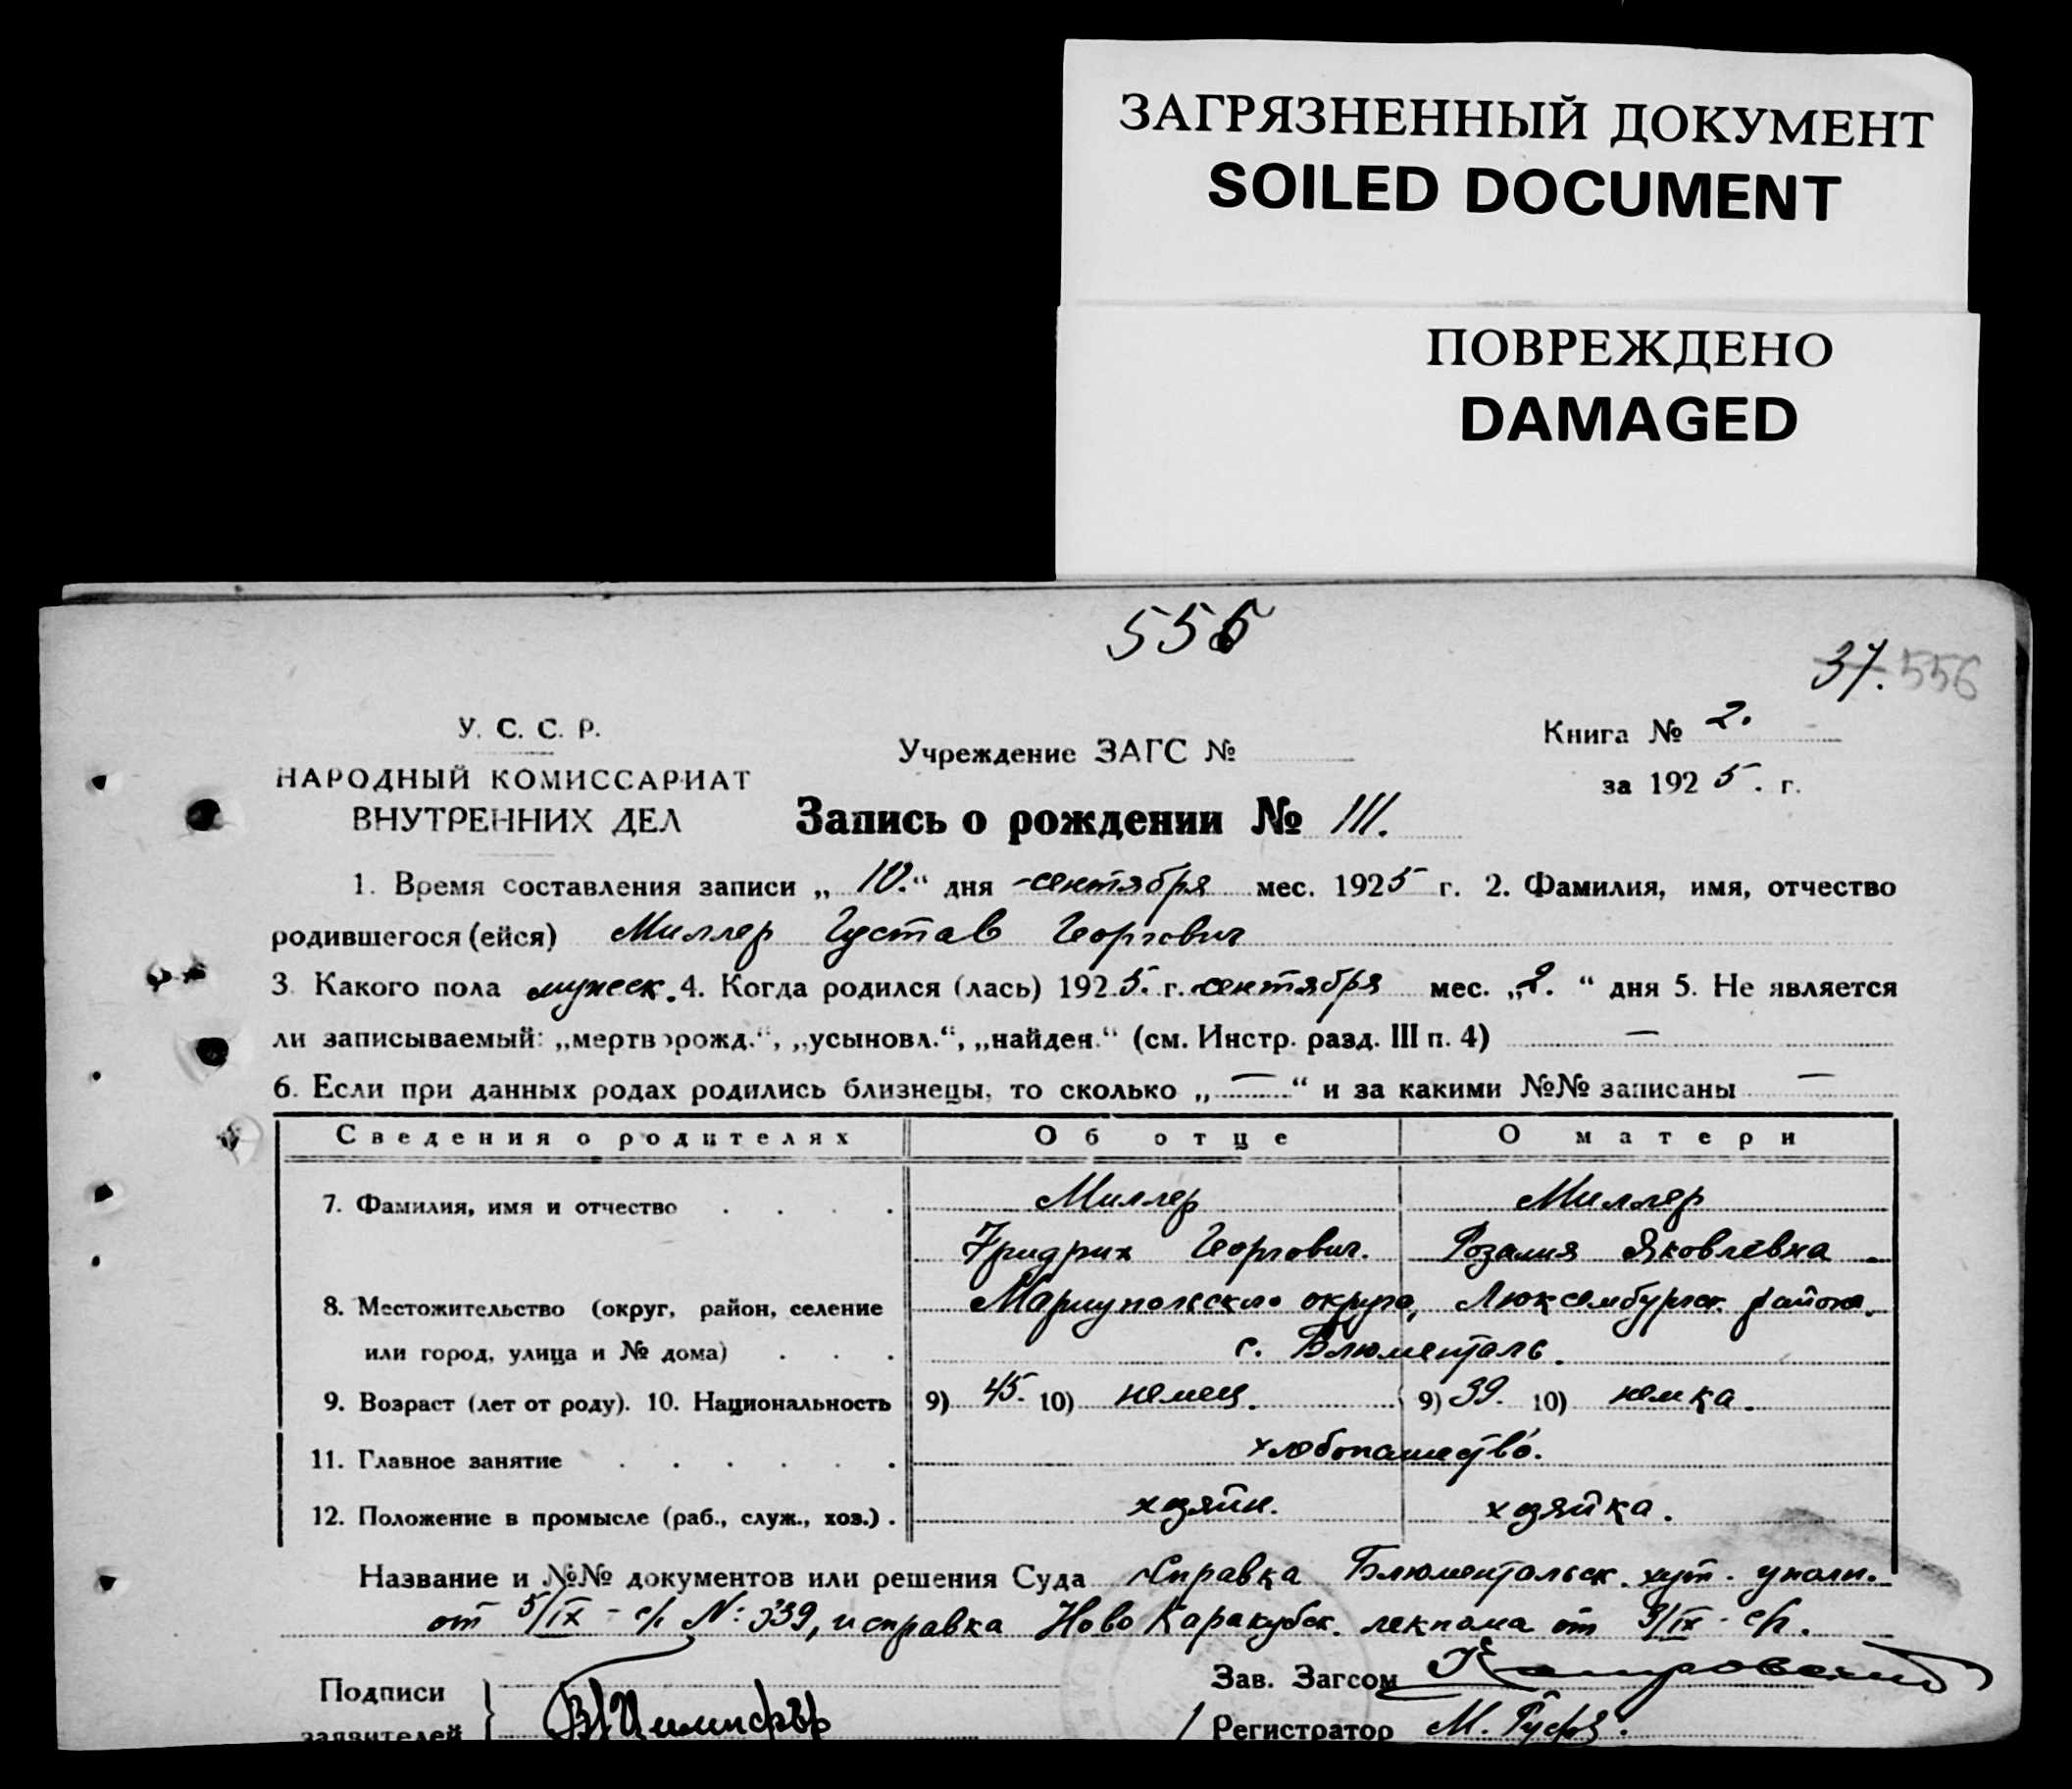 ЗАГРЯЗНЕННЫЙ ДОКУМЕНТ
SOILED DOCUMENT
ПОВРЕЖДЕНО
DAMAGED
556
37. 556
У. С. С. Р.
НАРОДНЫЙ КОМИССАРИАТ
ВНУТРЕННИХ ДЕЛ
Учреждение ЗАГС №
Книга № 2.
за 1925. г.
Запись о рождении № 111.
1. Время составления записи „10.“ дня сентября мес. 1925 г. 2. Фамилия, имя, отчество
родившегося (ейся) Миллер Густав Георгович
3. Какого пола мужеск. 4. Когда родился (лась) 1925. г. сентября мес. „2.“ дня 5. Не является
ли записываемый: „мертворожд.“, „усыновл.“, „найден.“ (см. Инстр. разд. III п. 4) —
6. Если при данных родах родились близнецы, то сколько „—“ и за какими №№ записаны —
Сведения о родителях Об отце О матери
7. Фамилия, имя и отчество . . . . Миллер Миллер
Фридрих Георгович. Розалия Яковлевна
8. Местожительство (округ, район, селение Мариупольского округа, Люксембургск. района,
или город, улица и № дома) . . . с. Блюменталь.
9. Возраст (лет от роду). 10. Национальность 9) 45. 10) немец. 9) 39. 10) немка.
11. Главное занятие . . . . . . хлебопашество.
12. Положение в промысле (раб., служ., хоз.) . хозяин. хозяйка.
Название и №№ документов или решения Суда Справка Блюментальск. хут. уполн.
от 5/IX - с/г № 339, и справка Ново Каракубск. лекпома от 3/IX - с/г.
Подписи
заявителей
Зав. Загсом
Регистратор М.